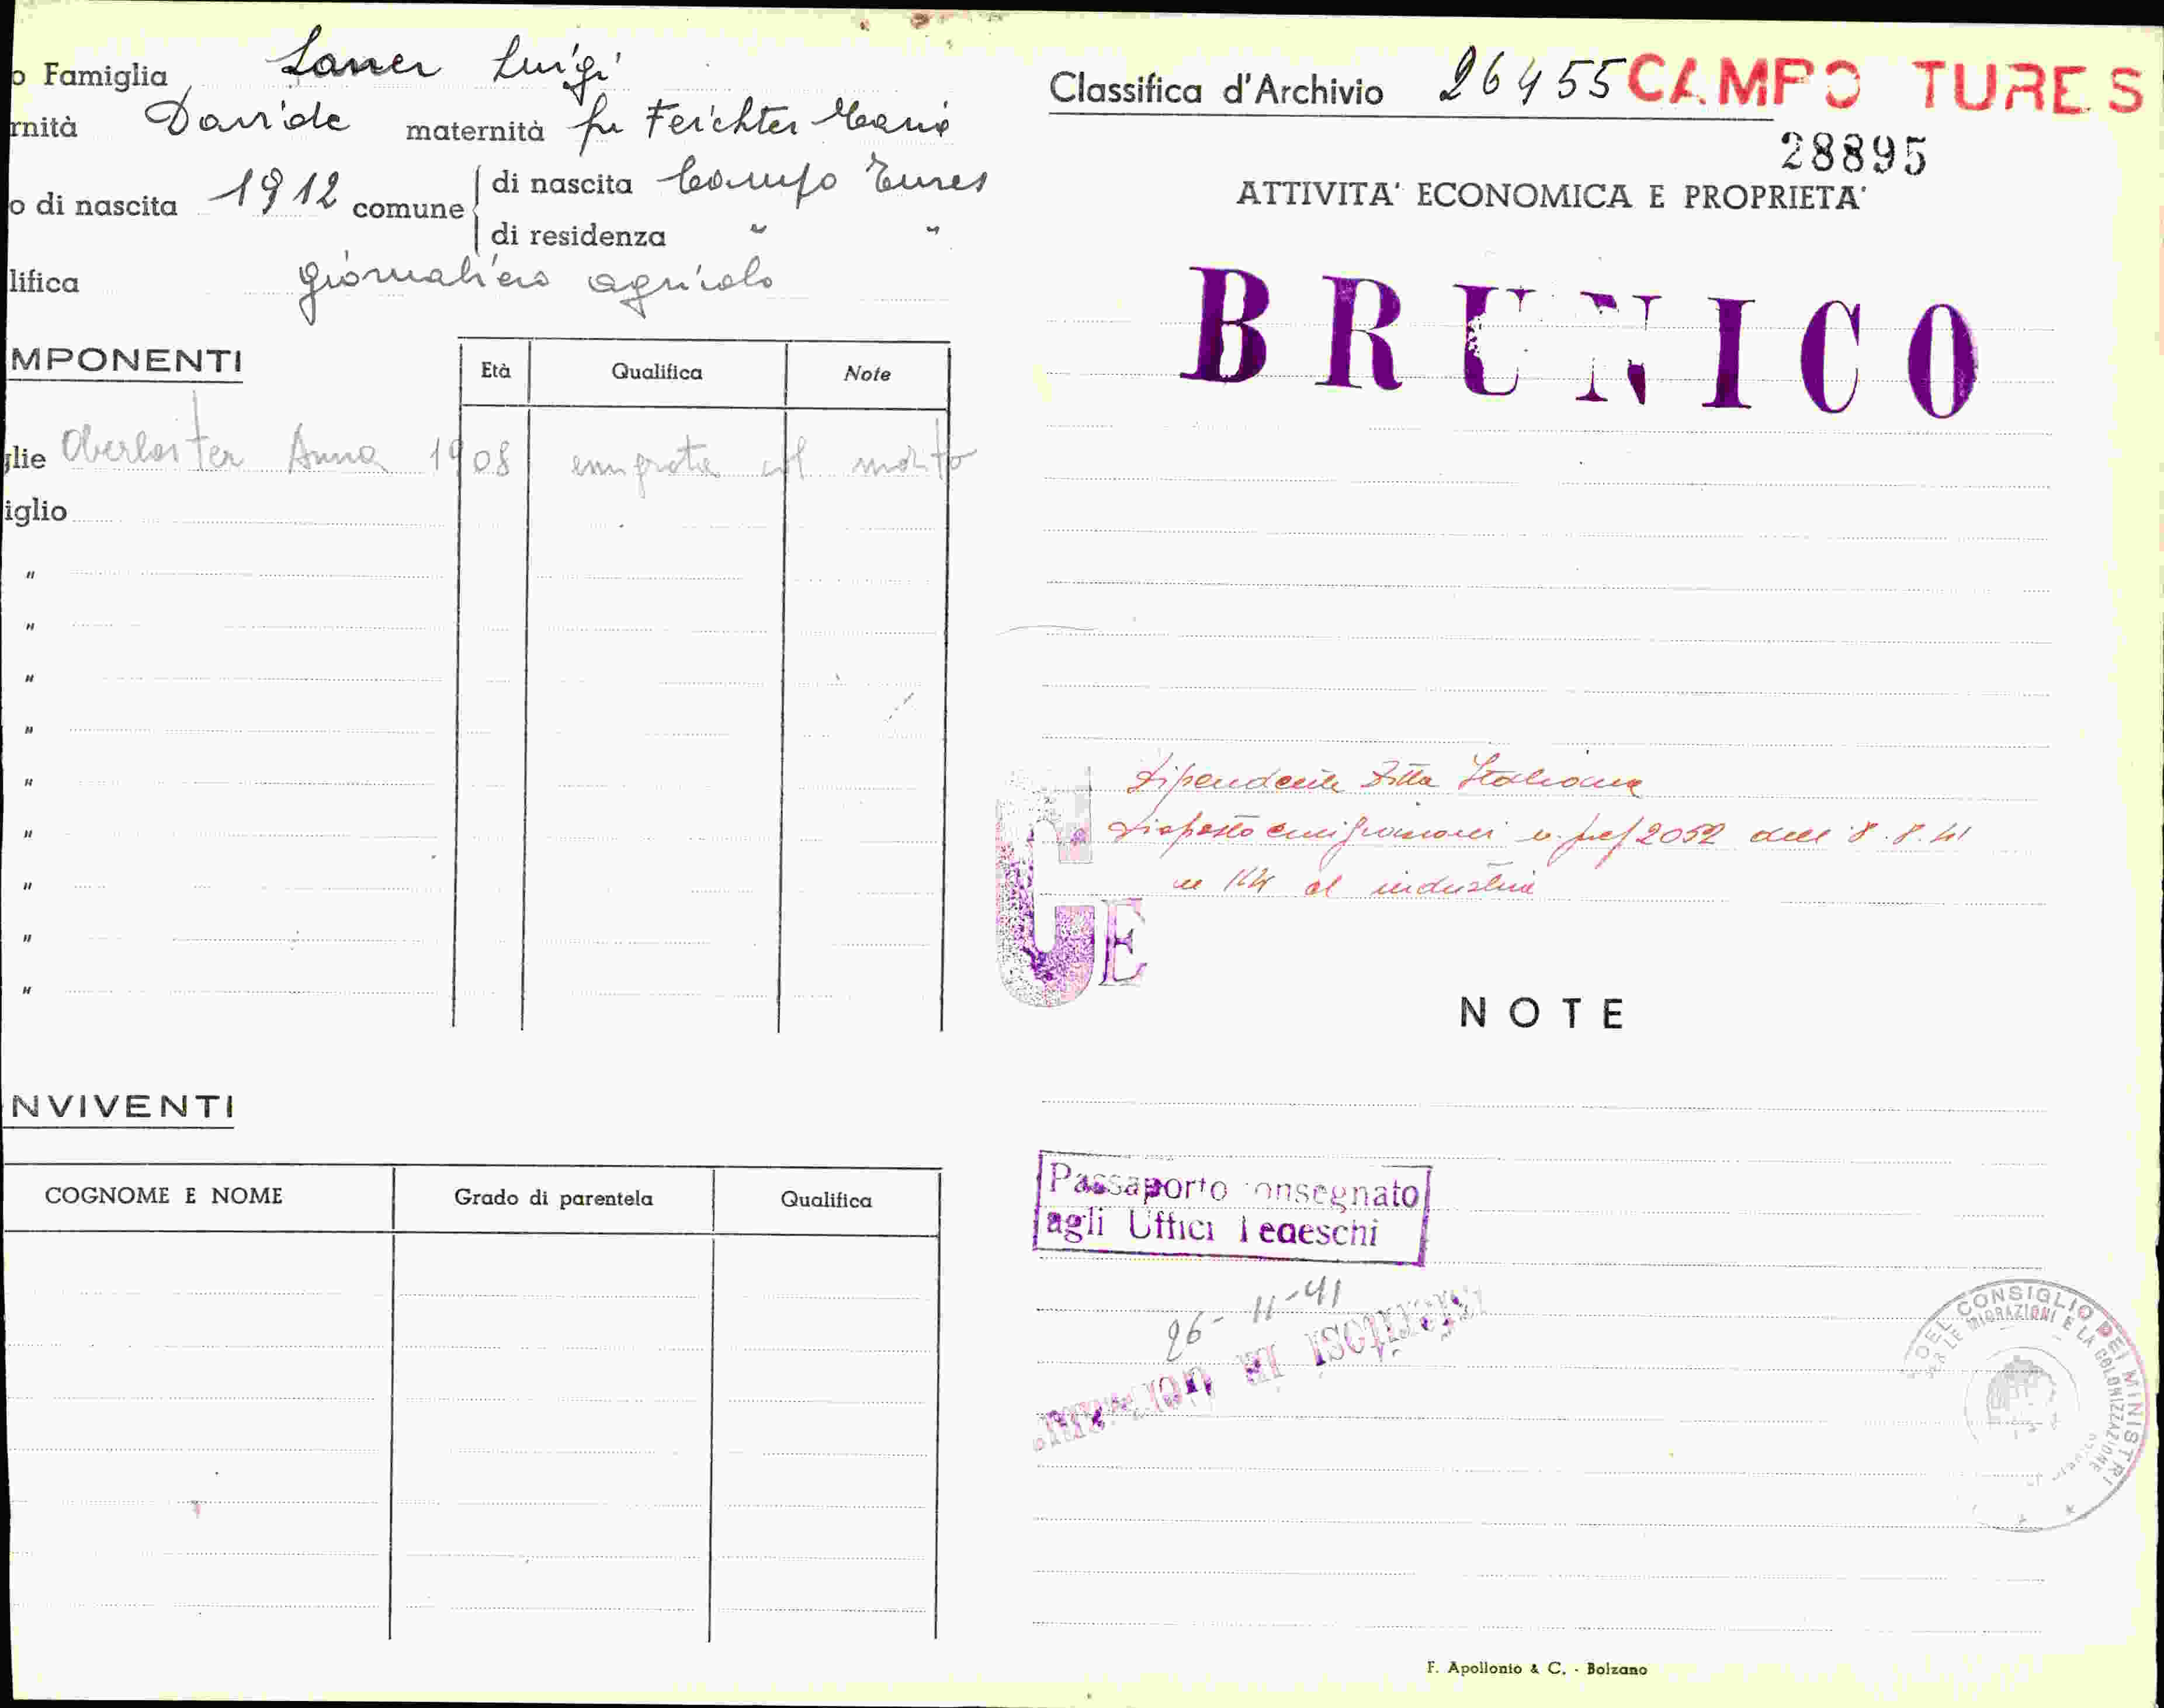 o Famiglia Laner Luigi
rnità Davide maternità fu Feichter Maria
o di nascita 1912 comune di nascita Campo Tures
di residenza " "
lifica giornaliero agricolo
MPONENTI
Età Qualifica Note
glie Oberleiter Anna 1908 emigrata col marito
iglio
"
"
"
"
"
"
"
"
"
NVIVENTI
COGNOME E NOME Grado di parentela Qualifica
Classifica d'Archivio 26455 CAMPO TURES
28895
ATTIVITA' ECONOMICA E PROPRIETA'
BRUNICO
Dipendente Ditta Italiana
disposto 2052 8.8.41
industria
E
NOTE
Passaporto onsegnato
agli Uffici Tedeschi
26-11-41
DEL CONSIGLIO DEI MINISTRI
LE MIGRAZIONI E LA COLONIZZAZIONE
F. Apollonio & C. - Bolzano